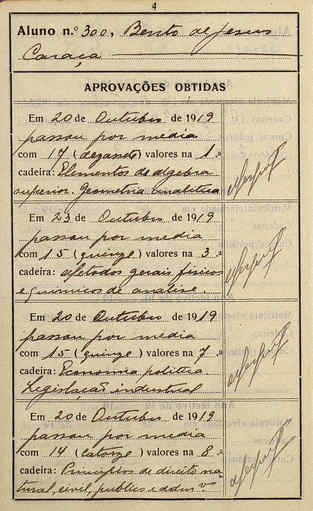 4
Aluno n.º 300, Bento de Jesus
Caraça
APROVAÇÕES OBTIDAS
Em 20 de Outubro de 1919
passou por media
com 17 (dezassete) valores na 1.ª
cadeira: Elementos de algebra
superior. Geometria analitica
Em 23 de Outubro de 1919
passou por media
com 15 (quinze) valores na 3.ª
cadeira: Metodos gerais fisicos
e quimicos de analise.
Em 20 de Outubro de 1919
passou por media
com 15 (quinze) valores na 7.ª
cadeira: Economia politica
Legislação industrial
Em 20 de Outubro de 1919
passou por media
com 14 (catorze) valores na 8.ª
cadeira: Principios de direito na
tural, civil, publico e adm.vo